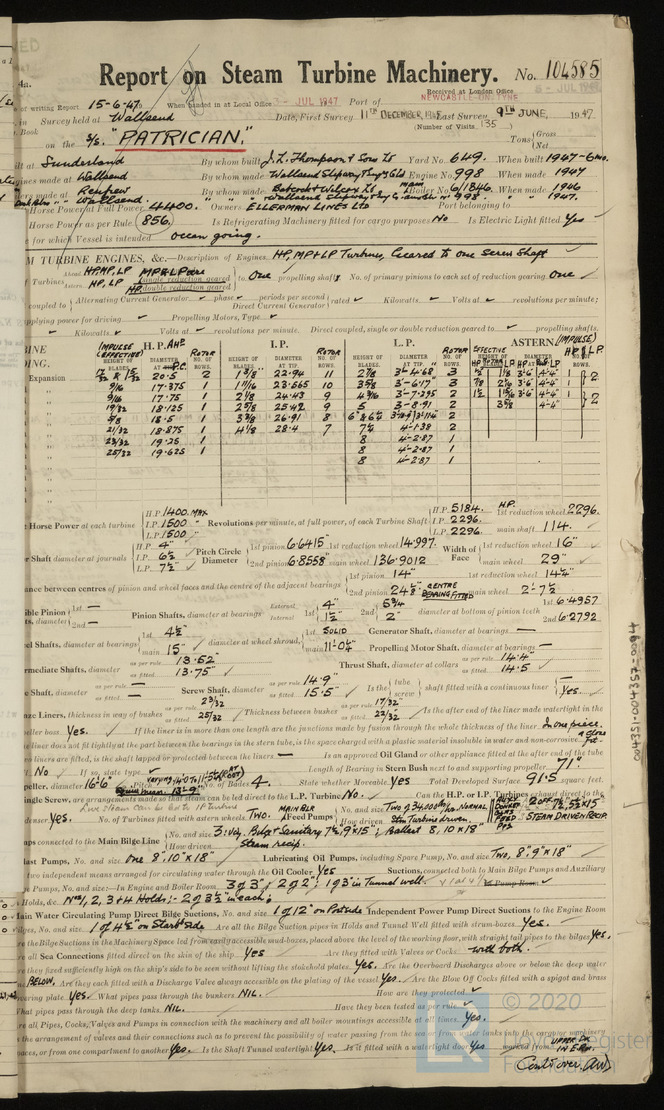 Report on Steam Turbine Machinery. No. 104585
Received at London Office
of writing Report 15-6-47 When handed in at Local Office JUL 1947 Port of NEWCASTLE-ON-TYNE
in Survey held at Wallsend Date, First Survey 11TH DECEMBER Last Survey 9TH JUNE, 1947
Book (Number of Visits 135)
on the S/S. "PATRICIAN." Tons Gross Net
built at Sunderland By whom built J. L. Thompson & Sons Ld Yard No. 649. When built 1947-6mo.
Engines made at Wallsend By whom made Wallsend Slipway & Eng'g Co Ld Engine No. 998 When made 1947
made at Renfrew By whom made Babcock & Wilcox Ld Boiler No. 6/1846. When made 1946
Wallsend. 998. 1947.
Horse Power at Full Power 4400. Owners ELLERMAN LINES LTD Port belonging to
Horse Power as per Rule 856. Is Refrigerating Machinery fitted for cargo purposes No Is Electric Light fitted Yes
for which Vessel is intended ocean going.
TURBINE ENGINES, &c.—Description of Engines HP, MP & LP Turbines, Geared to one Screw Shaft
Turbines Ahead HP, MP, LP Astern HP, LP MP & LP are single reduction geared HP double reduction geared to One propelling shafts. No. of primary pinions to each set of reduction gearing One
coupled to Alternating Current Generator phase periods per second Direct Current Generator rated Kilowatts Volts at revolutions per minute;
supplying power for driving Propelling Motors, Type
Kilowatts Volts at revolutions per minute. Direct coupled, single or double reduction geared to propelling shafts.
H.P. AHD I.P. L.P. ASTERN. (IMPULSE)
IMPULSE (EFFECTIVE) HEIGHT OF BLADES. DIAMETER AT P.C. ROTOR NO. OF ROWS. HEIGHT OF BLADES. DIAMETER AT TIP. ROTOR NO. OF ROWS. HEIGHT OF BLADES. DIAMETER AT TIP. ROTOR NO. OF ROWS.
Expansion 20.5 2 1 5/8 22.94 11 2 7/8 3'-4.68 3
9/16 17.375 1 1 11/16 23.565 10 3 5/8 3-6.17" 3
9/16 17.75 1 2 1/8 24.43 9 4 9/16 3-7.295 2
19/32 18.125 1 2 5/8 25.42 9 5 3-8.91 2
5/8 18.5 1 3 3/8 26.91 8 2
21/32 18.875 1 4 1/8 28.4 7 7 1/2 4-1.38 2
23/32 19.25 1 8 4-2.87 1
25/32 19.625 1 8 4-2.87 1
8 4-2.87 1
Horse Power at each turbine H.P. 1400. MAX I.P. 1500 " L.P. 1500 " Revolutions per minute, at full power, of each Turbine Shaft H.P. 5184. I.P. 2296. L.P. 2296. H.P. 1st reduction wheel 2296. main shaft 114.
Shaft diameter at journals H.P. 4" I.P. 6 1/2 L.P. 7 1/2 Pitch Circle Diameter 1st pinion 6.6415" 2nd pinion 6.8558" 1st reduction wheel 14.997. main wheel 136.9012 Width of Face 1st reduction wheel 16" main wheel 29"
Distance between centres of pinion and wheel faces and the centre of the adjacent bearings 1st pinion 14" 2nd pinion 24 1/8" CENTRE BEARING FITTED 1st reduction wheel 14 1/4" main wheel 2'-7 1/2
Flexible Pinion Shafts, diameter 1st — 2nd — Pinion Shafts, diameter at bearings External 1st 4" Internal 1st 1 1/2" 2nd 5 3/4 2" diameter at bottom of pinion teeth 1st 6.4957 2nd 6.2792
Wheel Shafts, diameter at bearings 1st 4 1/2 main 15" diameter at wheel shroud, 1st SOLID main 11'-0 1/4" Generator Shaft, diameter at bearings — Propelling Motor Shaft, diameter at bearings —
Intermediate Shafts, diameter as per rule 13.52" as fitted 13.75" Thrust Shaft, diameter at collars as per rule 14.4" as fitted 14.5
Tube Shaft, diameter as per rule — as fitted — Screw Shaft, diameter as per rule 14.9" as fitted 15.5" Is the tube screw shaft fitted with a continuous liner Yes.
Bronze Liners, thickness in way of bushes as per rule 23/32 as fitted 25/32 Thickness between bushes as per rule 17/32" as fitted 22/32" Is the after end of the liner made watertight in the
propeller boss. Yes. If the liner is in more than one length are the junctions made by fusion through the whole thickness of the liner In one piece.
If the liner does not fit tightly at the part between the bearings in the stern tube, is the space charged with a plastic material insoluble in water and non-corrosive
If two liners are fitted, is the shaft lapped or protected between the liners — Is an approved Oil Gland or other appliance fitted at the after end of the tube
shaft. No If so, state type — Length of Bearing in Stern Bush next to and supporting propeller 71"
Propeller, diameter 16'-6" Pitch No. of Blades 4. State whether Moveable Yes Total Developed Surface 91.5 square feet.
Single Screw, are arrangements made so that steam can be led direct to the L.P. Turbine No. Can the H.P. or I.P. Turbines exhaust direct to the
condenser Yes. No. of Turbines fitted with astern wheels Two. MAIN BLR Feed Pumps No. and size How driven Stm Turbine driven. STEAM DRIVEN RECIP.
Pumps connected to the Main Bilge Line No. and size 3: viz. Bilge & Sanitary 7 1/2, 9 x 15"; Ballast 8, 10 x 18" How driven Steam recip.
Ballast Pumps, No. and size One 8", 10" x 18" Lubricating Oil Pumps, including Spare Pump, No. and size Two, 8", 9" x 18"
Are two independent means arranged for circulating water through the Oil Cooler Yes Suctions, connected both to Main Bilge Pumps and Auxiliary
Bilge Pumps, No. and size:—In Engine and Boiler Room 3 of 3"; 2 of 2"; 1 of 3" in Tunnel well. In Pump Room
In Holds, &c. Nos 1, 2, 3 & 4 Holds:- 2 of 3 1/2" in each;
Main Water Circulating Pump Direct Bilge Suctions, No. and size 1 of 12" on Port side Independent Power Pump Direct Suctions to the Engine Room
Bilges, No. and size 1 of 4 1/2" on Starbd side Are all the Bilge Suction pipes in Holds and Tunnel Well fitted with strum-boxes Yes.
Are the Bilge Suctions in the Machinery Space led from easily accessible mud-boxes, placed above the level of the working floor, with straight tail pipes to the bilges Yes.
Are all Sea Connections fitted direct on the skin of the ship Yes Are they fitted with Valves or Cocks with both.
Are they fixed sufficiently high on the ship's side to be seen without lifting the stokehold plates Yes. Are the Overboard Discharges above or below the deep water
line BELOW. Are they each fitted with a Discharge Valve always accessible on the plating of the vessel Yes. Are the Blow Off Cocks fitted with a spigot and brass
covering plate Yes. What pipes pass through the bunkers NIL. How are they protected
What pipes pass through the deep tanks NIL. Have they been tested as per rule
Are all Pipes, Cocks, Valves and Pumps in connection with the machinery and all boiler mountings accessible at all times Yes.
Is the arrangement of valves and their connections such as to prevent the possibility of water passing from the sea or from water tanks into the cargo or machinery
spaces, or from one compartment to another Yes. Is the Shaft Tunnel watertight Yes. Is it fitted with a watertight door Yes worked from UPPER DK IN E.R.
(Cont'd over.
© 2020
Lloyd's Register
Foundation